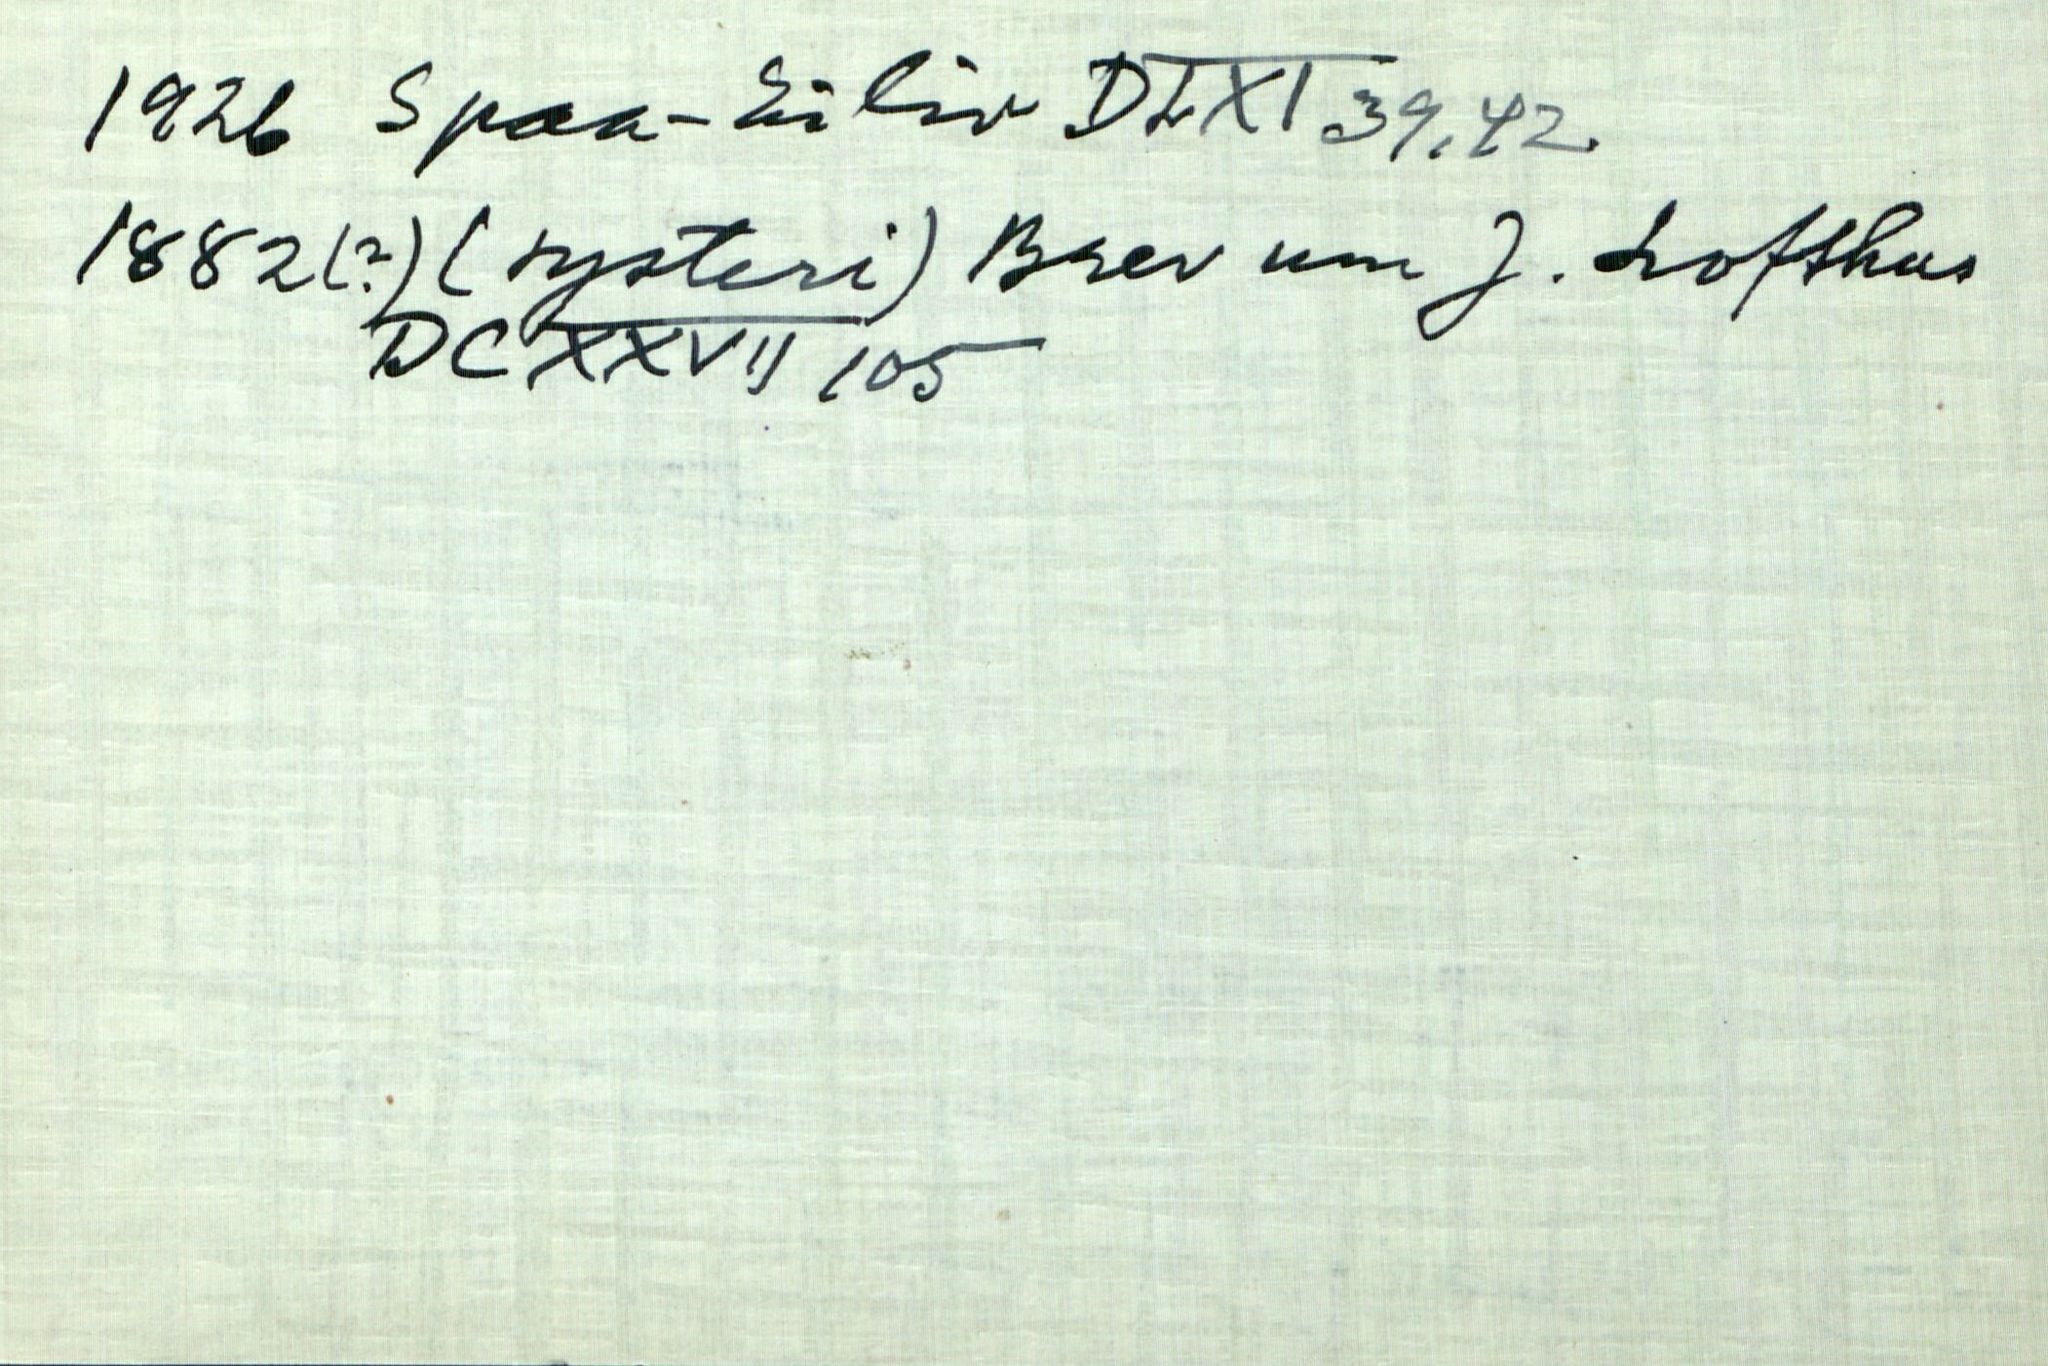 1926 Spaa-Eiliv DLXI 39,42.
1882(?) (systeri) Brev um J. Lofthus
DCXXVII 105